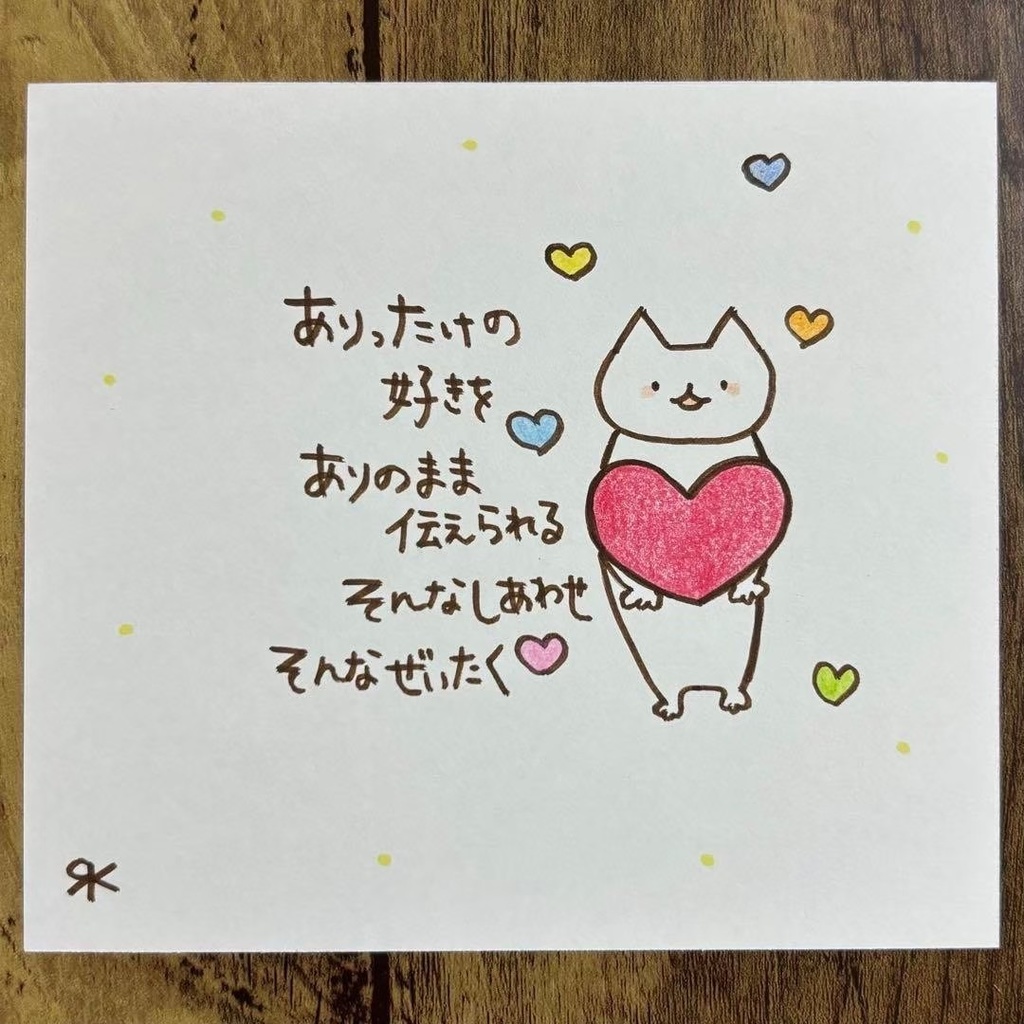 ありったけの
好きを
ありのまま
伝えられる
そんなしあわせ
そんなぜいたく